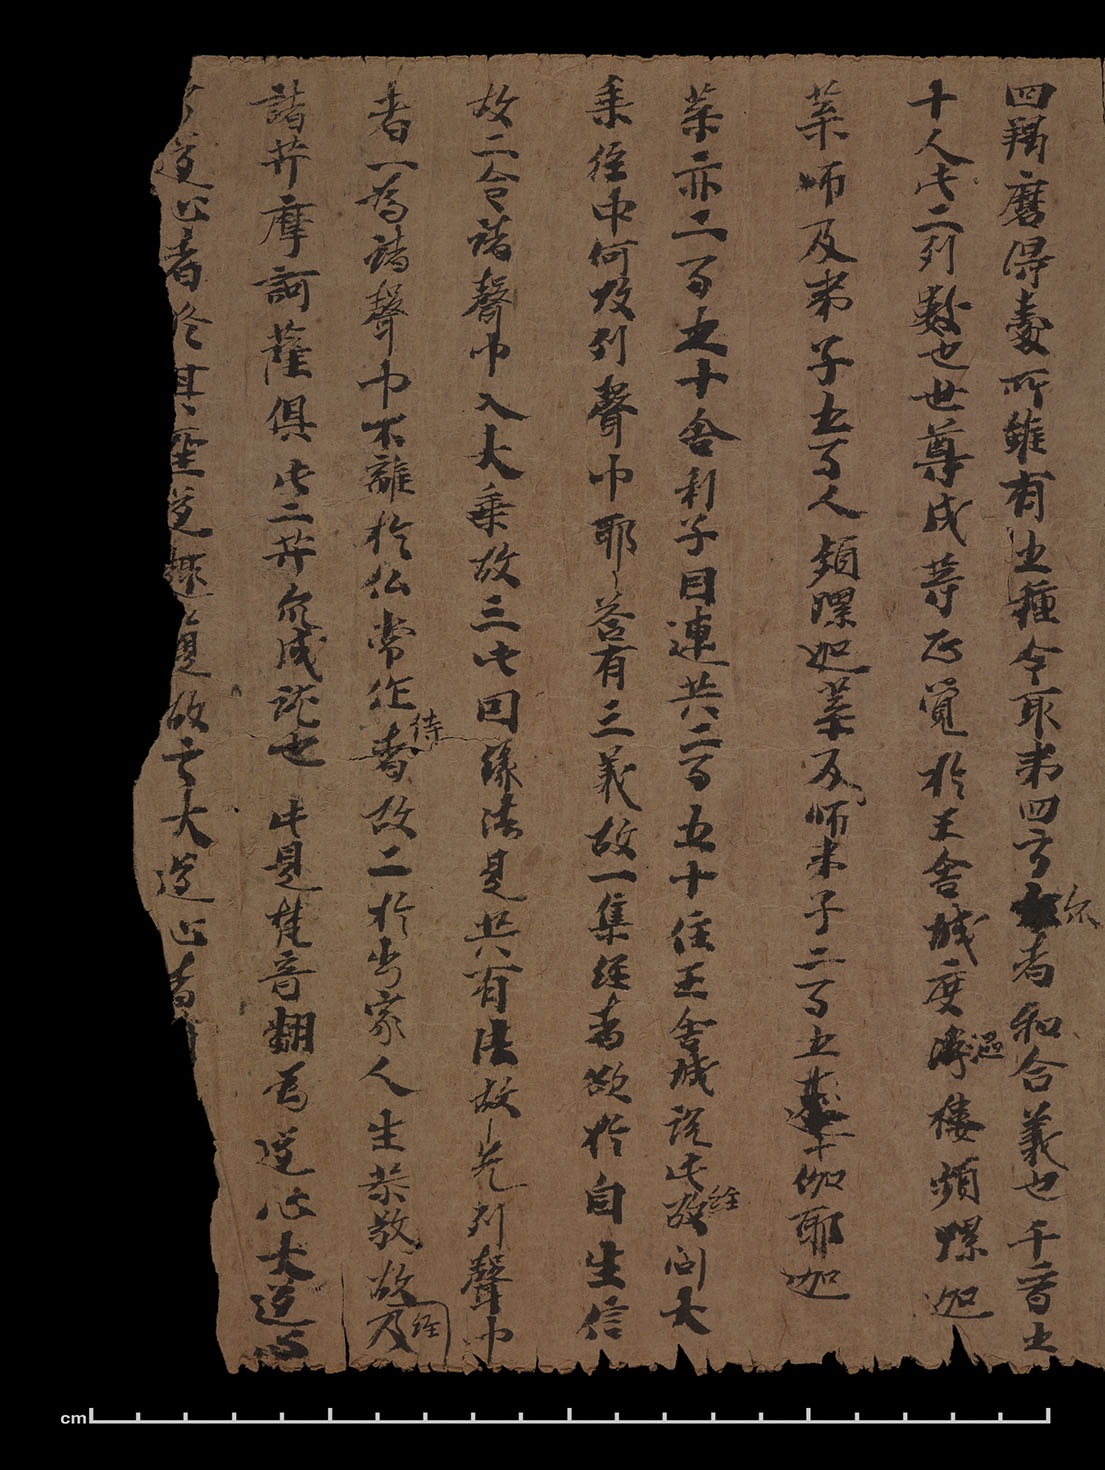 四羯磨得處所雖有五種今取第四言尔者和合義也千二百五
十人此二列數也世尊成等正覺於王舍城度優樓頻螺迦
葉師及弟子五百人頻螺迦葉及師弟子二百五十伽耶迦
葉亦二百五十舍利子目連共二百五十住王舍城說此經故問大
乘經中何故列聲巾耶答有三義故一集經者欲於自生信
故二令諸聲巾入大乘故三此因緣法是共有法故先列聲巾
者一為諸聲巾不離於仏常作侍者故二於出家人生恭敬故及經
諸菩摩訶薩俱此二菩薩成就也此是梵音翻為道心大道心
道心者於其座道是故言大道心者